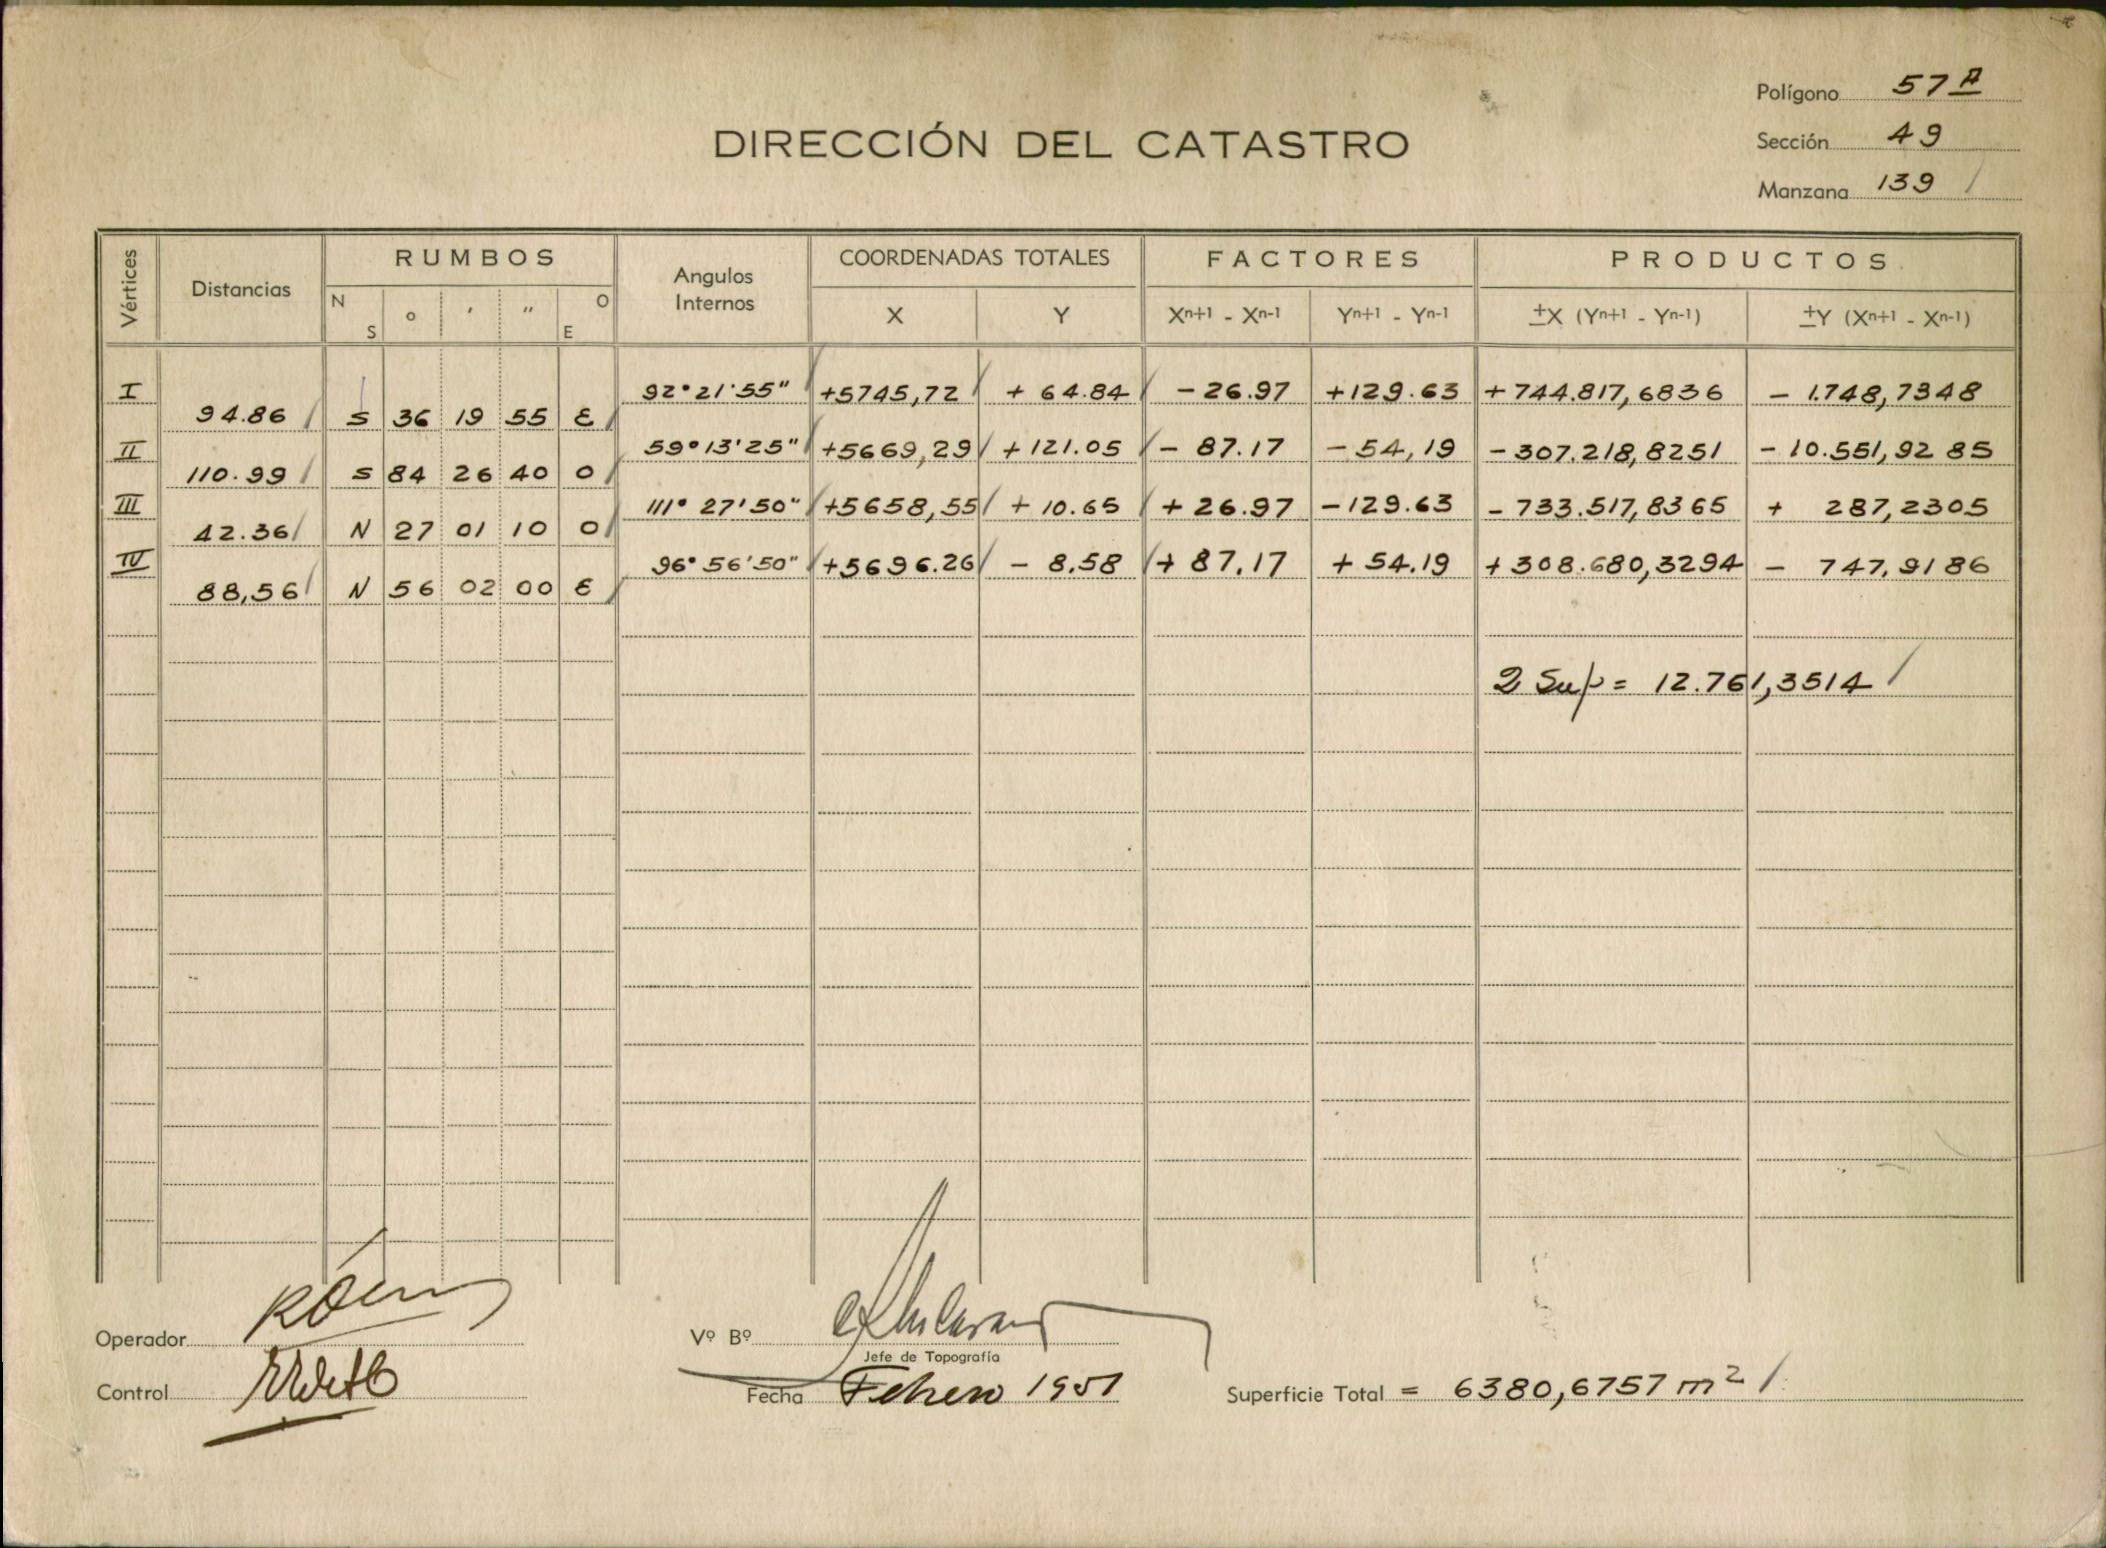 Polígono 57 A
DIRECCIÓN DEL CATASTRO
Sección 49
Manzana 139
Vértices Distancias RUMBOS Angulos Internos COORDENADAS TOTALES FACTORES PRODUCTOS
N S ° ' " O E X Y Xn+1 - Xn-1 Yn+1 - Yn-1 ±X (Yn+1 - Yn-1) ±Y (Xn+1 - Xn-1)
I 92°21'55" +5745,72 + 64.84 - 26.97 +129.63 +744.817,6836 - 1.748,7348
94.86 S 36 19 55 E
II 59°13'25" +5669,29 + 121.05 - 87.17 - 54,19 -307.218,8251 - 10.551,92 85
110.99 S 84 26 40 O
III 111° 27'50" +5658,55 + 10.65 + 26.97 -129.63 - 733.517,8365 + 287,2305
42.36 N 27 01 10 O
IV 96° 56'50" +5696.26 - 8.58 + 87.17 + 54.19 +308.680,3294 - 747,9186
88,56 N 56 02 00 E
2 Sup = 12.761,3514
Operador
Vº Bº
Jefe de Topografía
Control
Fecha Febrero 1951
Superficie Total = 6380,6757 m2